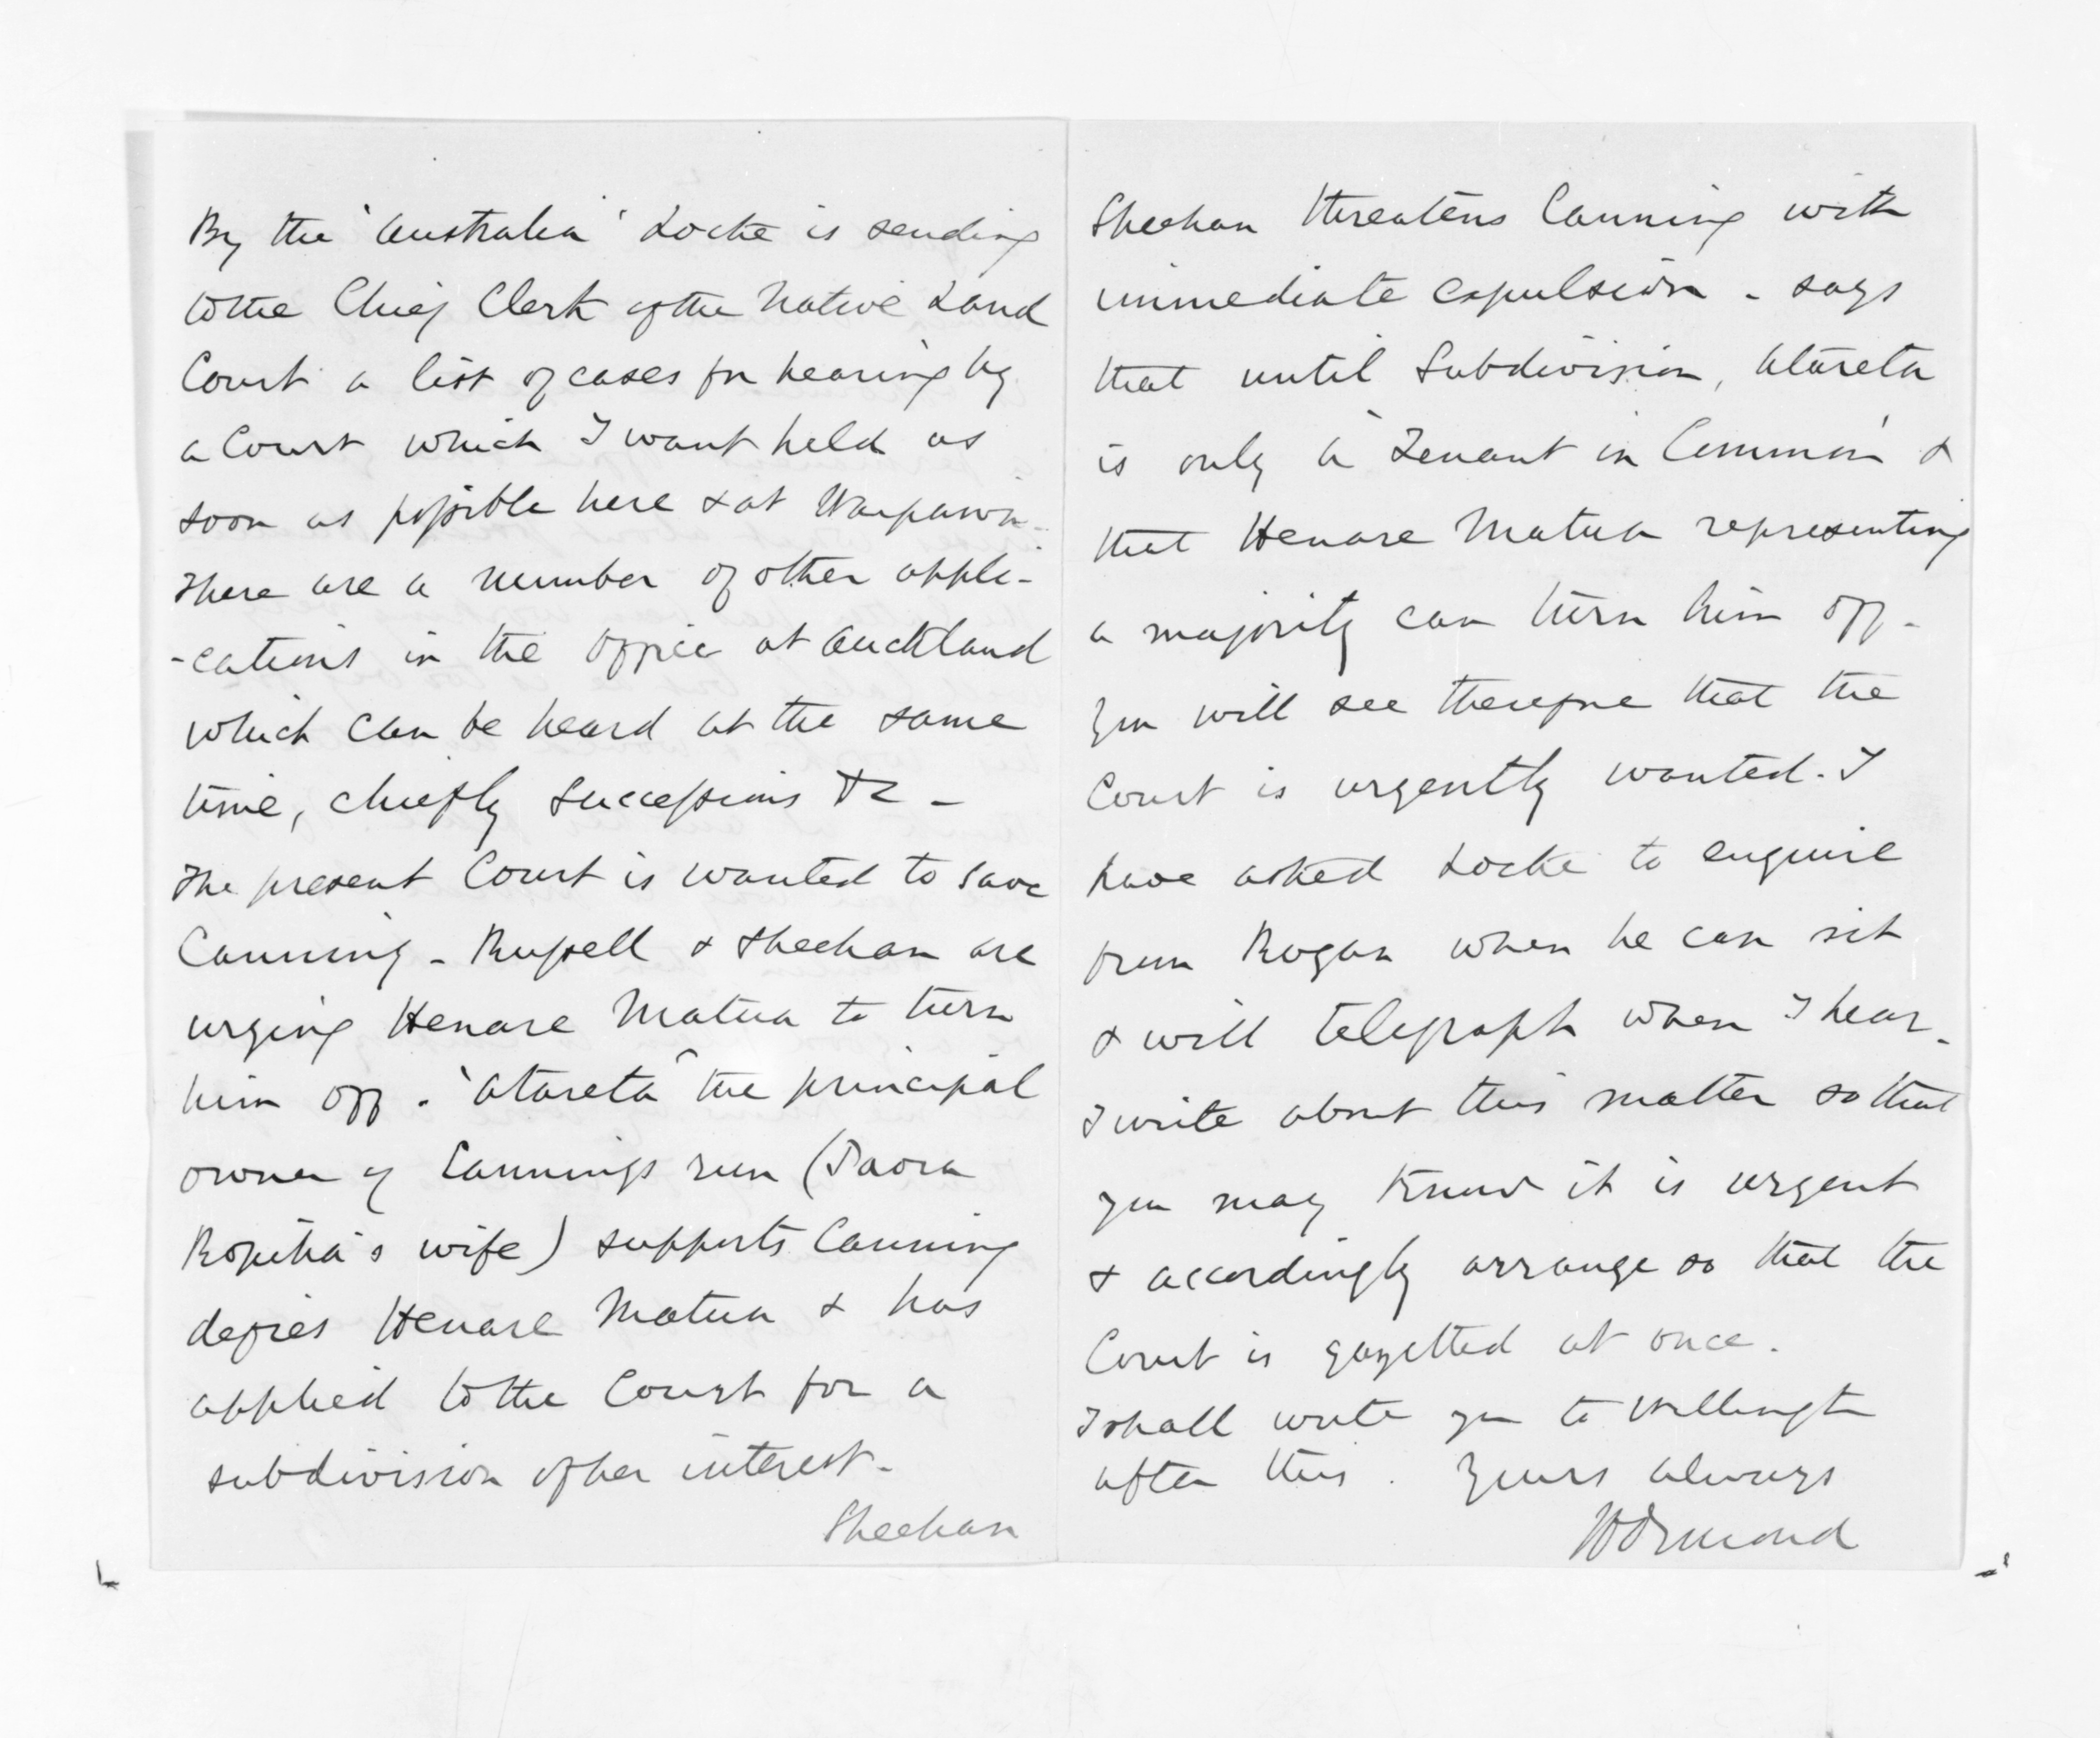 By the 'Australia' Locke is sending
to the Chief Clerk of the Native Land
Court a list of cases for hearing by
a Court which I want held as
soon as possible here & at Waipawa -
There are a number of other appli-
-cations in the Office at Auckland
which can be heard at the same
time, chiefly Successions &c -
The present Court is wanted to save
Canning - Russell & Sheehan are
urging Henare Matua to turn
him off. 'Atareta' the principal
owner of Cannings run (Paora
Ropiha's wife) supports Canning
defies Henare Matua & has
applied to the Court for a
subdivision of her interest -
Sheehan
Sheehan threatens Canning with
immediate expulsion - says
that until Subdivision, Atareta
is only a 'Tenant in Common' &
that Henare Matua representing
a majority can turn him off -
You will see therefore that the
Court is urgently wanted. I
have asked Locke to enquire
from Rogan when he can sit
& will telegraph when I hear -
I write about this matter so that
you may know it is urgent
& accordingly arrange so that the
Court is gazetted at once.
I shall write you to Wellington
after this. Yours always
JDOrmond